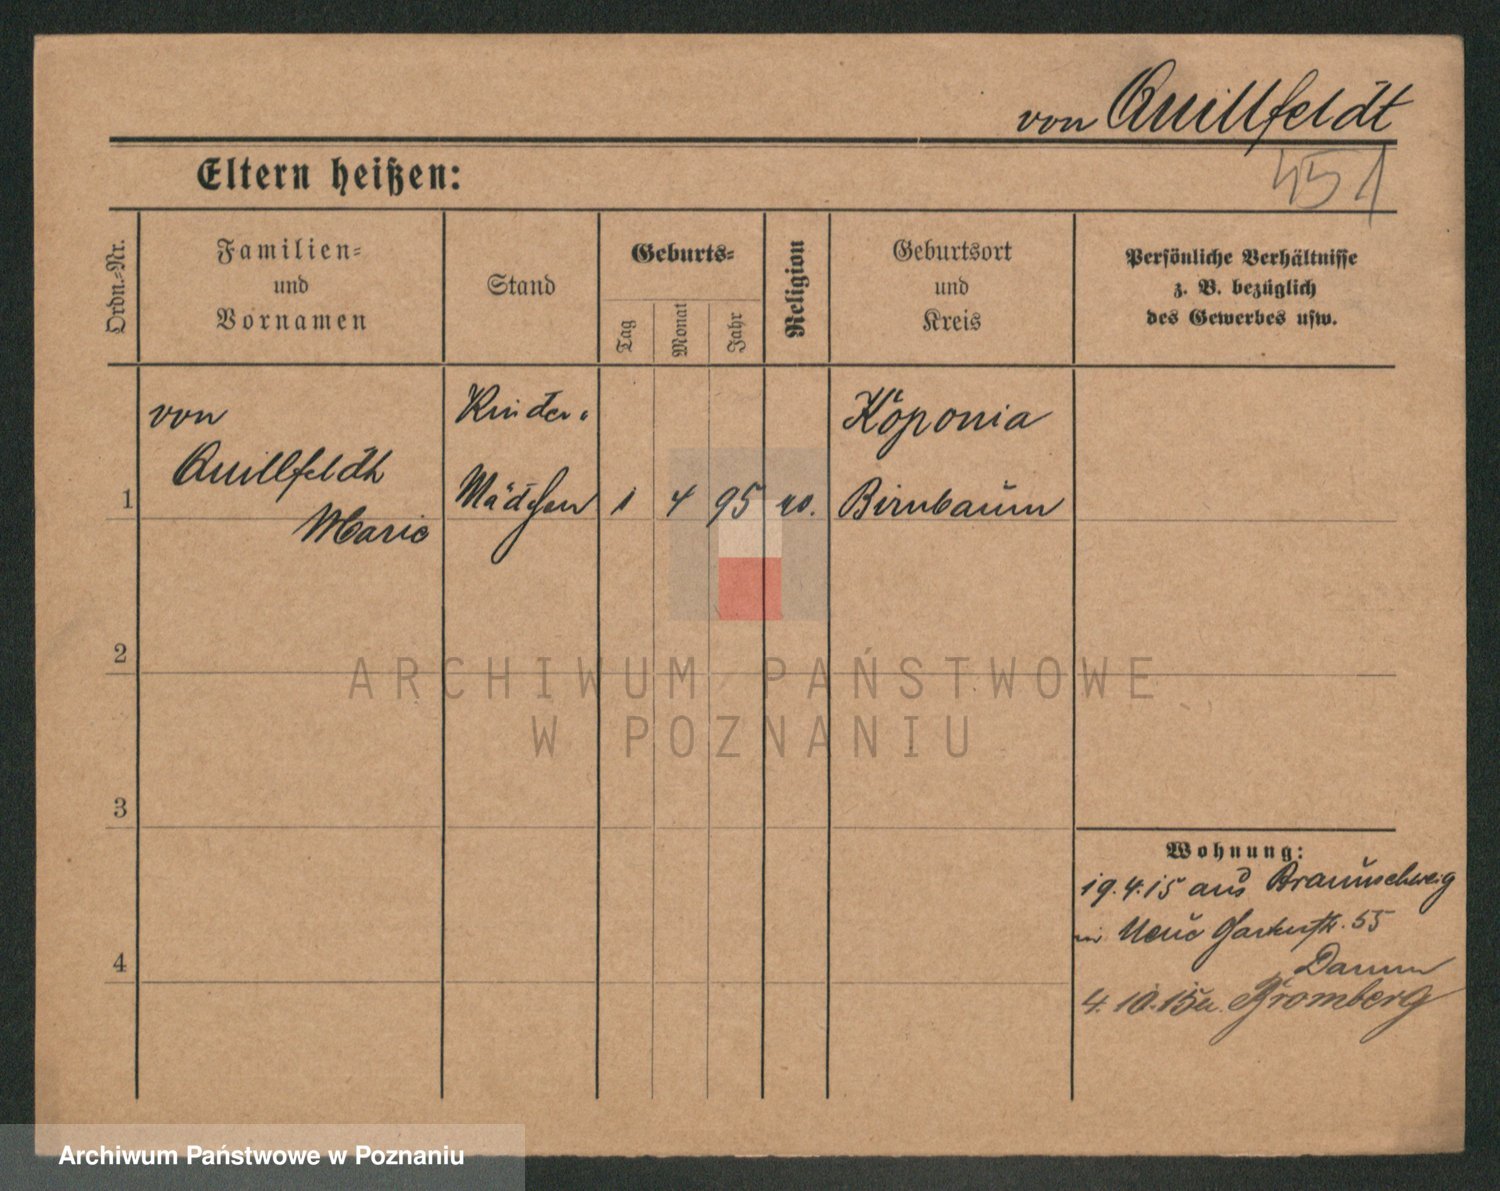 von Quillfeldt
451
Eltern heißen:
Ordn.-Nr.
Familien-
und
Vornamen
Stand
Geburts-
Tag
Monat
Jahr
Religion
Geburtsort
und
Kreis
Persönliche Verhältnisse
z. B. bezüglich
des Gewerbes usw.
1
von
Quillfeldt
Marie
Kinder-
Mädchen
1
4
95
Koponia
Birnbaum
2
3
4
Wohnung:
19.4.15 aus Braunschweig
Neue Gartenstr. 55
4.10.15 Bromberg
ARCHIWUM PAŃSTWOWE
W POZNANIU
Archiwum Państwowe w Poznaniu